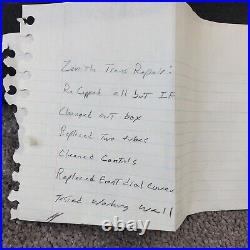 Zenith Trans Repairs:
Re Capped all but IF
Changed out box
Replaced Two tubes
Cleaned Controls
Replaced Front dial cover
Tested working well